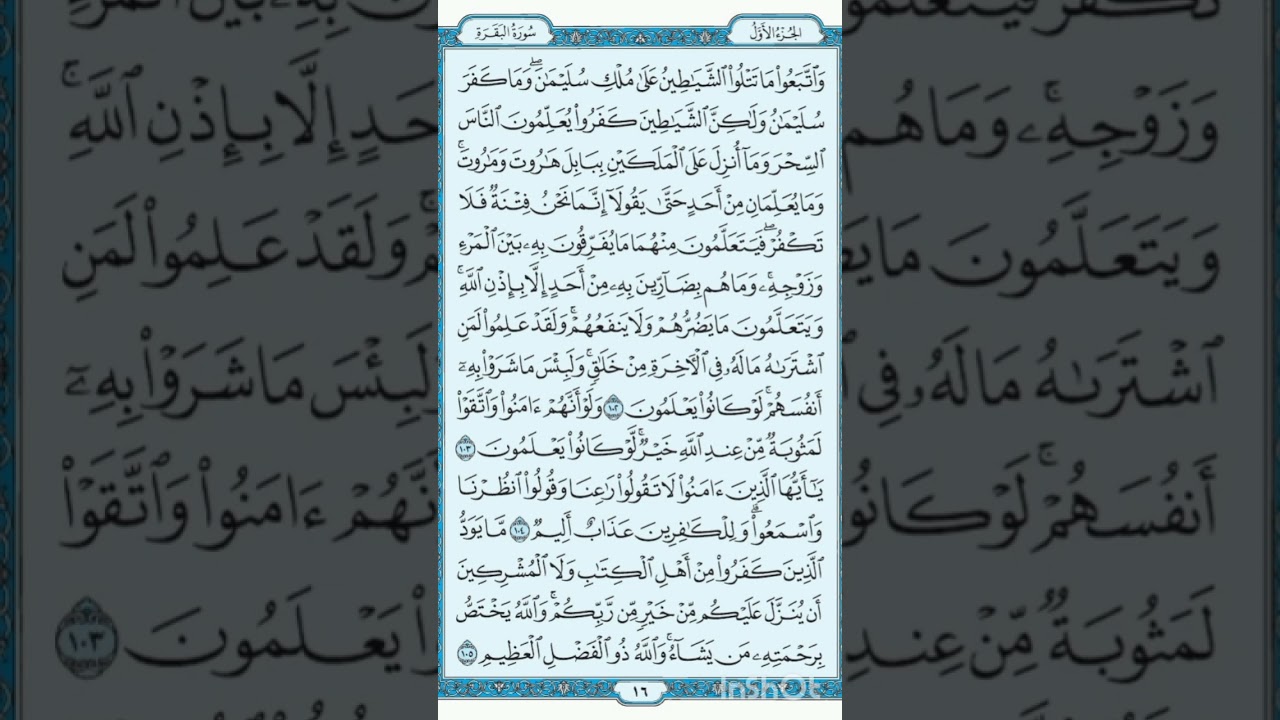 الجزء الأول
سورة البقرة
وَٱتَّبَعُوا۟ مَا تَتْلُوا۟ ٱلشَّيَـٰطِينُ عَلَىٰ مُلْكِ سُلَيْمَـٰنَ ۖ وَمَا كَفَرَ
سُلَيْمَـٰنُ وَلَـٰكِنَّ ٱلشَّيَـٰطِينَ كَفَرُوا۟ يُعَلِّمُونَ ٱلنَّاسَ
ٱلسِّحْرَ وَمَآ أُنزِلَ عَلَى ٱلْمَلَكَيْنِ بِبَابِلَ هَـٰرُوتَ وَمَـٰرُوتَ ۚ
وَمَا يُعَلِّمَانِ مِنْ أَحَدٍ حَتَّىٰ يَقُولَآ إِنَّمَا نَحْنُ فِتْنَةٌ فَلَا
تَكْفُرْ ۖ فَيَتَعَلَّمُونَ مِنْهُمَا مَا يُفَرِّقُونَ بِهِۦ بَيْنَ ٱلْمَرْءِ
وَزَوْجِهِۦ ۚ وَمَا هُم بِضَآرِّينَ بِهِۦ مِنْ أَحَدٍ إِلَّا بِإِذْنِ ٱللَّهِ ۚ
وَيَتَعَلَّمُونَ مَا يَضُرُّهُمْ وَلَا يَنفَعُهُمْ ۚ وَلَقَدْ عَلِمُوا۟ لَمَنِ
ٱشْتَرَىٰهُ مَا لَهُۥ فِى ٱلْـَٔاخِرَةِ مِنْ خَلَـٰقٍ ۚ وَلَبِئْسَ مَا شَرَوْا۟ بِهِۦٓ
أَنفُسَهُمْ ۚ لَوْ كَانُوا۟ يَعْلَمُونَ ١٠٢ وَلَوْ أَنَّهُمْ ءَامَنُوا۟ وَٱتَّقَوْا۟
لَمَثُوبَةٌ مِّنْ عِندِ ٱللَّهِ خَيْرٌ ۖ لَّوْ كَانُوا۟ يَعْلَمُونَ ١٠٣
يَـٰٓأَيُّهَا ٱلَّذِينَ ءَامَنُوا۟ لَا تَقُولُوا۟ رَٰعِنَا وَقُولُوا۟ ٱنظُرْنَا
وَٱسْمَعُوا۟ ۗ وَلِلْكَـٰفِرِينَ عَذَابٌ أَلِيمٌ ١٠٤ مَّا يَوَدُّ
ٱلَّذِينَ كَفَرُوا۟ مِنْ أَهْلِ ٱلْكِتَـٰبِ وَلَا ٱلْمُشْرِكِينَ
أَن يُنَزَّلَ عَلَيْكُم مِّنْ خَيْرٍ مِّن رَّبِّكُمْ ۗ وَٱللَّهُ يَخْتَصُّ
بِرَحْمَتِهِۦ مَن يَشَآءُ ۚ وَٱللَّهُ ذُو ٱلْفَضْلِ ٱلْعَظِيمِ ١٠٥
١٦
InShOt